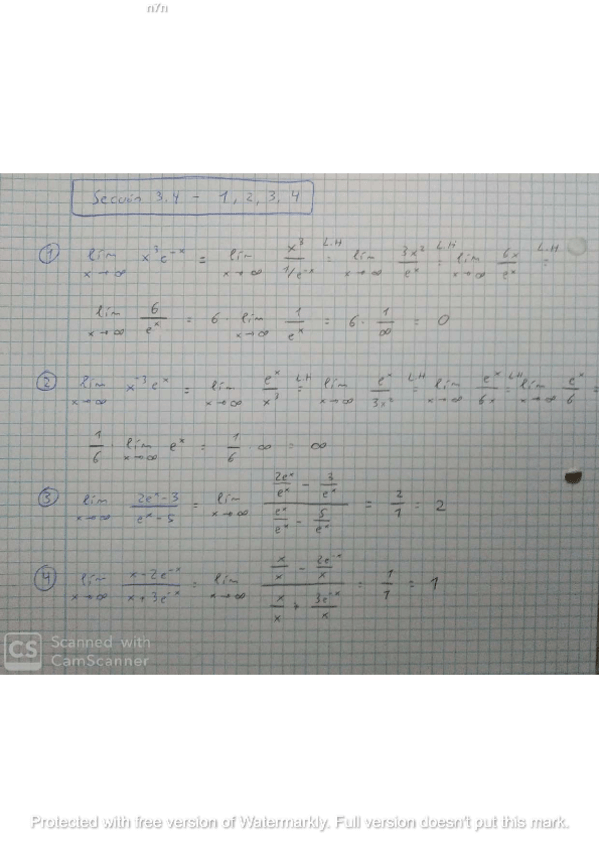 n7n
Sección 3.4 - 1, 2, 3, 4
① lim x→∞ x³e⁻ˣ = lim x→∞ x³/(1/e⁻ˣ) L.H = lim x→∞ 3x²/eˣ L.H = lim x→∞ 6x/eˣ L.H =
lim x→∞ 6/eˣ = 6 · lim x→∞ 1/eˣ = 6 · 1/∞ = 0
② lim x→∞ x⁻³eˣ = lim x→∞ eˣ/x³ L.H = lim x→∞ eˣ/3x² L.H = lim x→∞ eˣ/6x L.H = lim x→∞ eˣ/6 =
1/6 · lim x→∞ eˣ = 1/6 · ∞ = ∞
③ lim x→∞ (2eˣ-3)/(eˣ-5) = lim x→∞ (2eˣ/eˣ - 3/eˣ)/(eˣ/eˣ - 5/eˣ) = 2/1 = 2
④ lim x→∞ (x-2e⁻ˣ)/(x+3e⁻ˣ) = lim x→∞ (x/x - 2e⁻ˣ/x)/(x/x + 3e⁻ˣ/x) = 1/1 = 1
CS Scanned with
CamScanner
Protected with free version of Watermarkly. Full version doesn't put this mark.